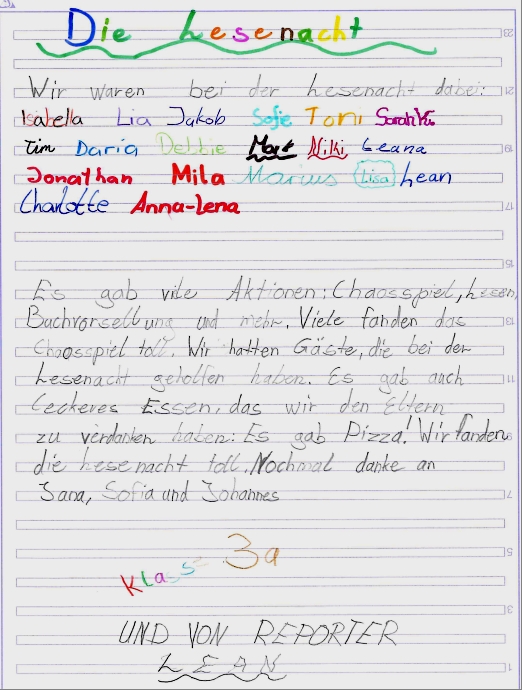 Die Lesenacht
Wir waren bei der Lesenacht dabei:
Isabella Lia Jakob Sofie Toni Sarah
Tim Daria Debbie Mart Niki Leana
Jonathan Mila Marius Lisa Lean
Charlotte Anna-Lena
Es gab vile Aktionen: Chaosspiel, Lesen,
Buchvorsellung und mehr. Viele fanden das
Chaosspiel toll. Wir hatten Gäste, die bei der
Lesenacht geholfen haben. Es gab auch
leckeres Essen, das wir den Eltern
zu verdanken haben: Es gab Pizza! Wir fanden
die Lesenacht toll. Nochmal danke an
Jana, Sofia und Johannes
Klasse 3a
UND VON REPORTER
LEAN
23
21
19
17
15
13
11
7
5
3
1